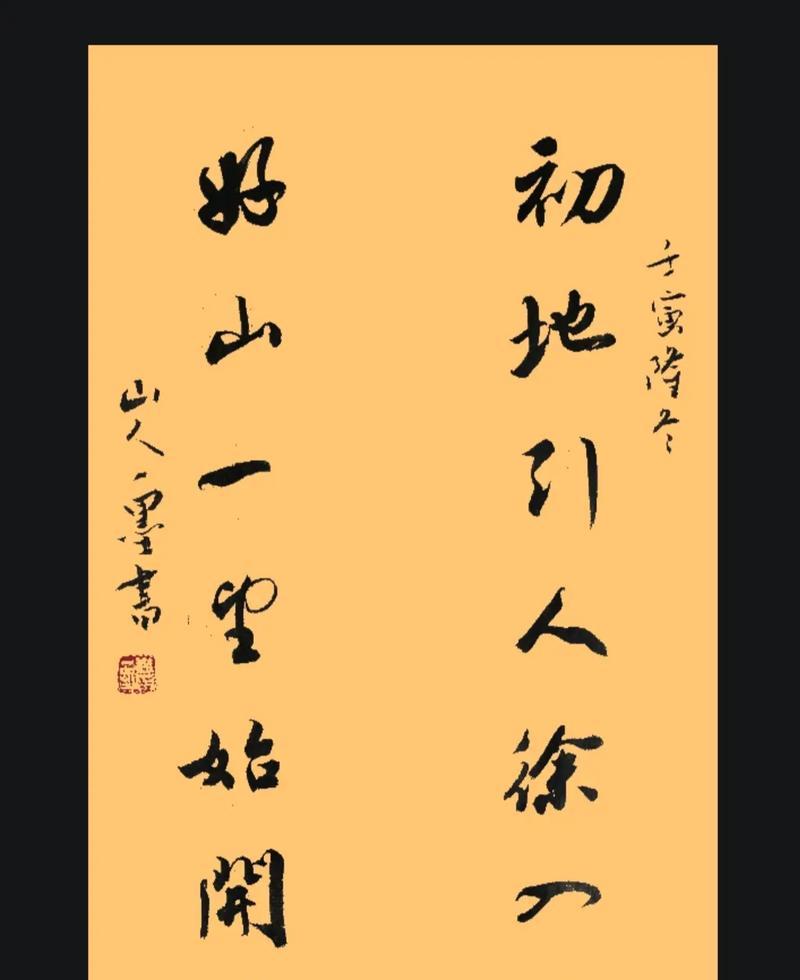 壬寅隆冬
初地引人徐入
好山一望始開
山人一墨書